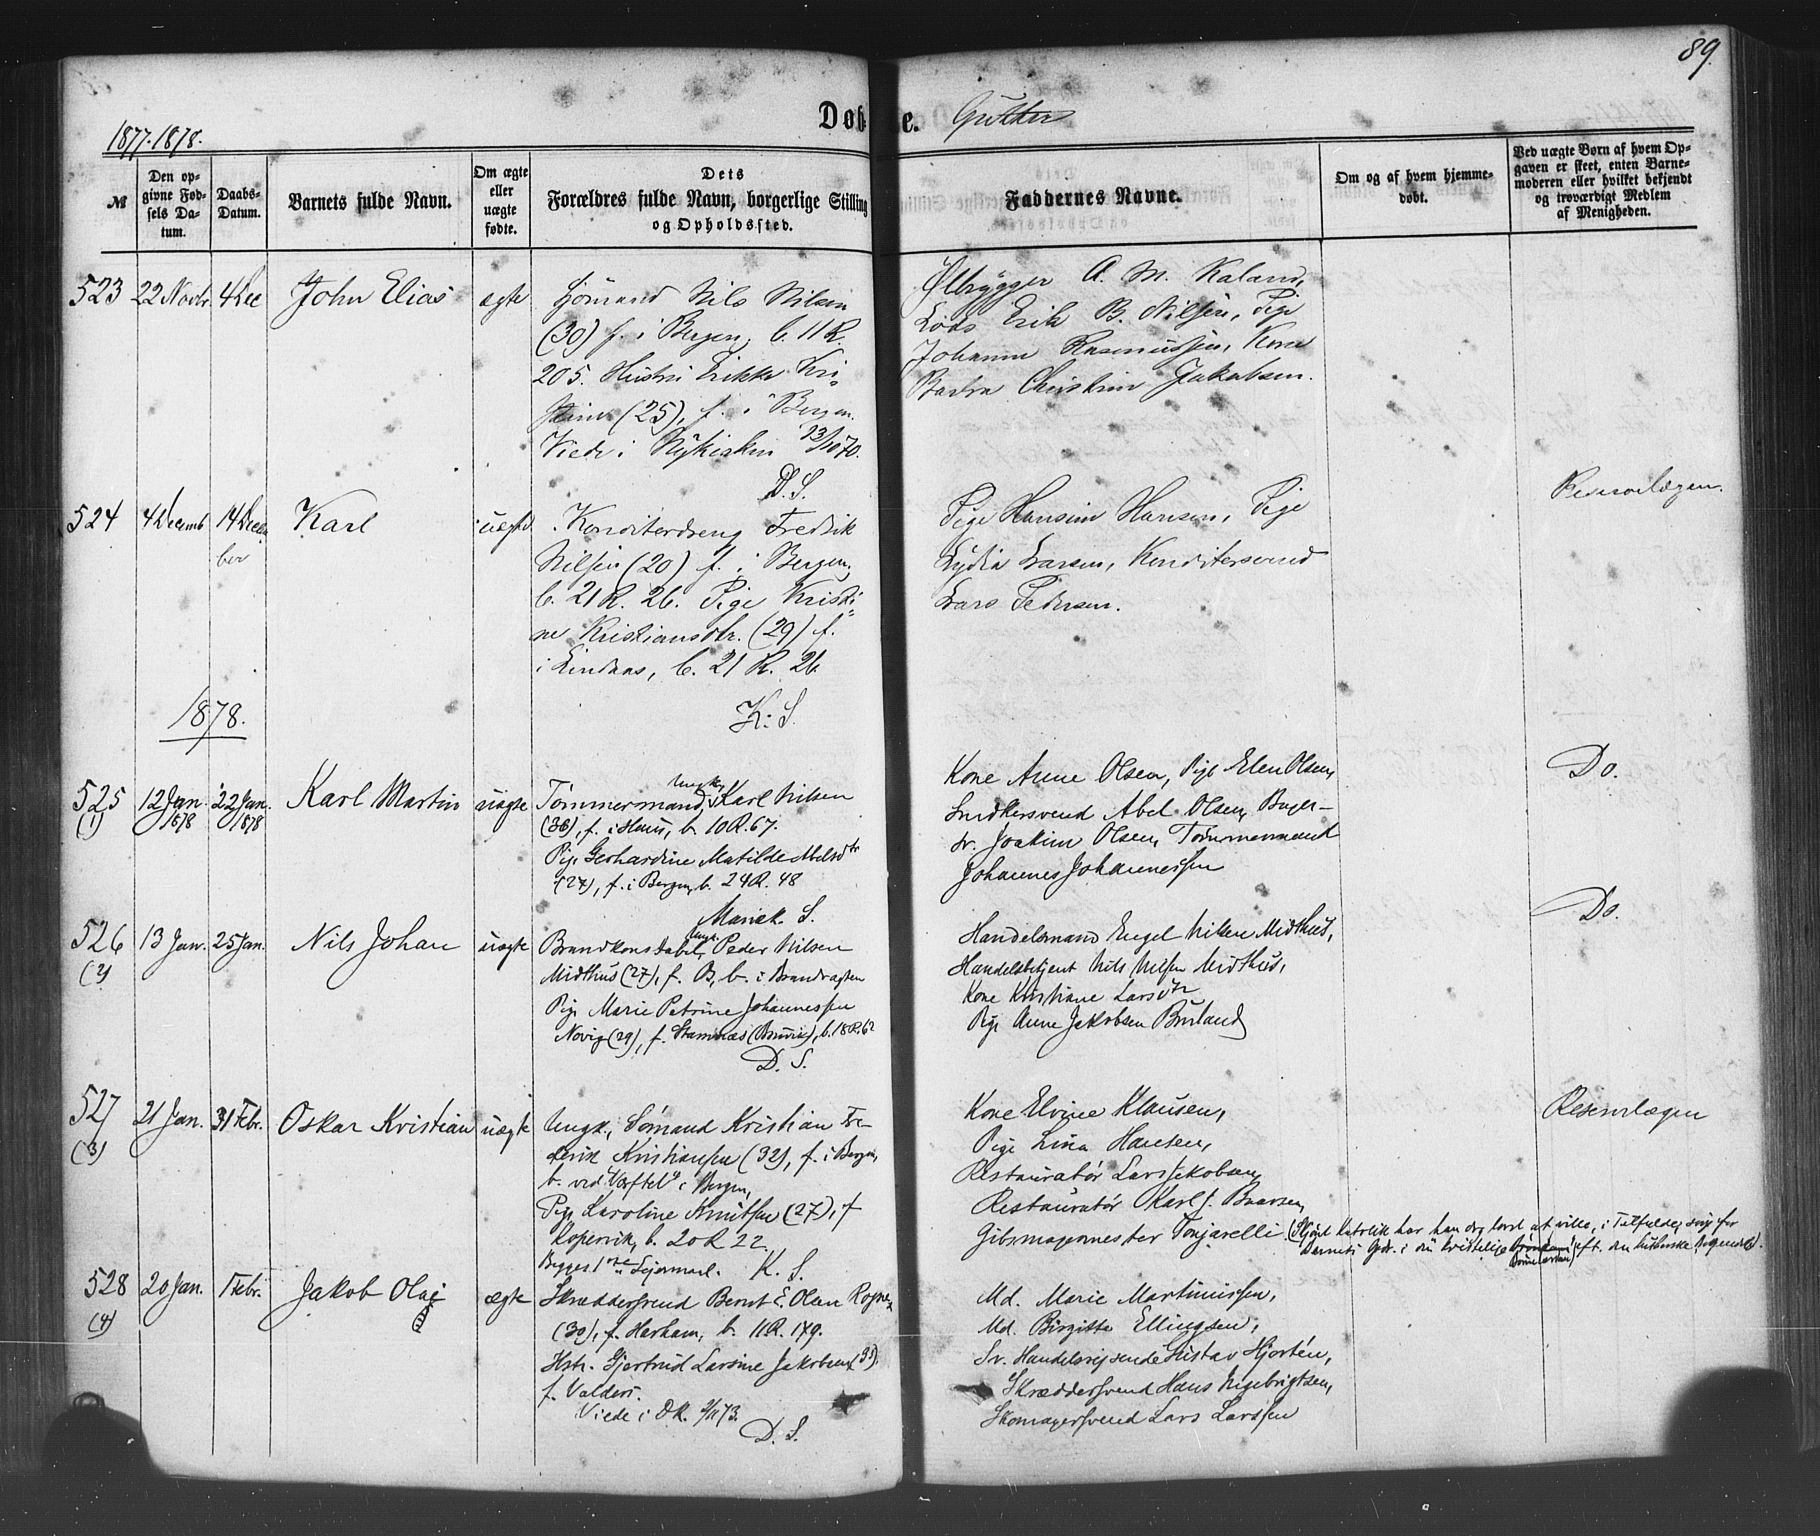 89.
1877-1878.
Døbte. Gutter
№
Den opgivne Fødsels Datum.
Daabs-Datum.
Barnets fulde Navn.
Om ægte eller uægte fødte.
Dets Forældres fulde Navn, borgerlige Stilling og Opholdssted.
Faddernes Navne.
Om og af hvem hjemmedøbt.
Ved uægte Børn af hvem Opgaven er skeet, enten Barnemoderen eller hvilket bekjendt og troværdigt Medlem af Menigheden.
523 22 Novbr. 4 Dec John Elias ægte
Sømand Nils Nilsen
(30) f. i Bergen, b. 11 R.
205. Hustru Erikke Kri-
stine (25), f. i Bergen.
Viede i Nykirken 23/10 70.
D. S.
Ølbrygger A. M. Kaland,
Lods Erik B. Nilsen, Pige
Johanne Rasmussen, Kone
Barbra Christine Jakobsen.
524 4 Decemb 14 Decem
ber
Karl uægte
Konditordreng Fredrik
Nilsen (20) f. i Bergen,
b. 21 R. 26. Pige Kristi-
ne Kristiansdtr. (29) f.
i Lindaas, b. 21 R. 26
K. S.
Pige Hansine Hansen, Pige
Lydia Larsen, Konditorsvend
Lars Pedersen.
Reservelægen.
1878.
525 (1) 12 Jan. 1878 22 Jan. 1878 Karl Martin uægte
Tømmermand, Ungk. Karl Nilsen
(36), f. i Haus, b. 10 R. 67.
Pige Gerhardine Matilde Nilsdtr
(27), f. i Bergen, b. 24 R. 48
Mariek. S.
Kone Anne Olsen, Pige Elen Olsen,
Snedkersvend Abel Olsen, Bager-
sv. Joakim Olsen, Tømmermand
Johannes Johannessen
Do.
526 (2) 13 Jan. 25 Jan. Nils Johan uægte
Brandkonstabel, Ungk. Peder Nilsen
Midthus (27), f. Os, b. i Brandvagten
Pige Marie Petrine Johannessen
(29), f. Stamnæs (Bruvik), b. 18 R. 62
D. S.
Handelsmand Engel Nilsen Midthus,
Handelsbetjent Nils Nilsen Midthus,
Kone Kristiane Larsdtr
Pige Anne Jakobsen
Do.
527 (3) 21 Jan. 31 Febr. Oskar Kristian uægte
Ungk., Sømand Kristian Fre-
derik Kristiansen (32), f. i Bergen,
b. ved "Værftet" i Bergen,
Pige Karoline Knutsen (27), f.
Kopervik, b. 20 R 22.
Begges 1ste Leiermaal. K. S.
Kone Elvine Klausen,
Pige Lina Hansen,
Restauratør Lars Jakobsen,
Restauratør Karl J.
Gibsmagermester Tonjarelli (Skjønt Katolik har han dog lovet at ville, i Tilfælde, sørge for
Barnets Opdr. i den kristelige Børnelærdom eft. den lutherske Bekjendelse).
Reservelægen
528 (4) 20 Jan. 1 Febr. Jakob Olaj ægte
Skræddersvend Bernt E. Olsen
(30), f. Harham, b. 11 R. 179.
Hstr. Gjertrud Larsine Jakobsen
f. Valders.
Viede i DK. 73.
D. S.
Md. Marie Martinussen,
Md. Birgitte Ellingsen,
Sv. Handelsrejsende Gustav Hjortén,
Skræddersvend Hans Ingebrigtsen,
Skomagersvend Lars Larssen